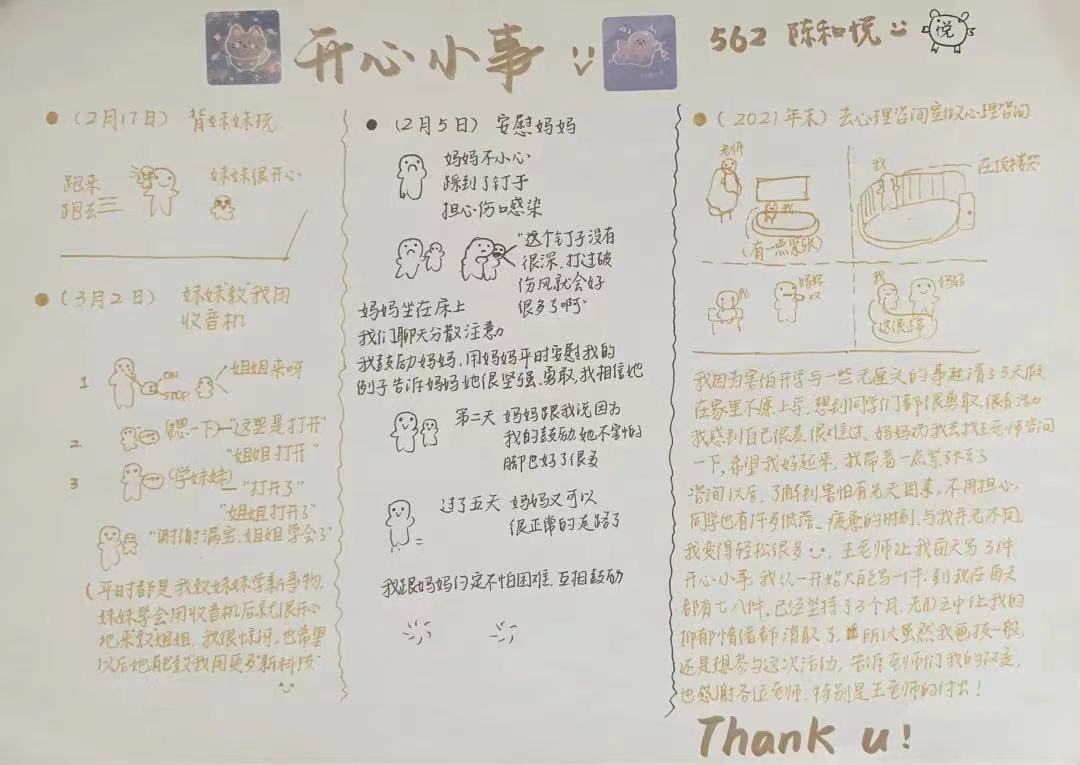 开心小事
562 陈和悦
悦
(2月17日) 背妹妹玩
跑来
跑去
妹妹很开心
(3月2日) 妹妹“教”我用
收音机
1
ON
STOP
姐姐来呀
2
(想一下)—“这里是打开”
“姐姐打开”
3
(学妹妹)
—“打开了”
“姐姐打开了”
“谢谢满宝,姐姐学会了”
(平时都是我教妹妹学新事物,
妹妹学会用收音机后就很开心
地来教姐姐,我很惊讶,也希望
以后她再能教我用更多“新科技”
(2月5日) 安慰妈妈
妈妈不小心
踩到了钉子
担心伤口感染
“这个钉子没有
很深,打过破
伤风就会好
很多了啊”
妈妈坐在床上
我们聊天分散注意力
我鼓励妈妈,用妈妈平时安慰我的
例子告诉妈妈她很坚强、勇敢,我相信她
第二天 妈妈跟我说因为
我的鼓励她不害怕的
脚也好了很多
过了五天 妈妈又可以
很正常的走路了
我跟妈妈约定不怕困难,互相鼓励
(2021年末) 去心理咨询室做心理咨询
老师
我
(有一点紧张)
我
在顶楼哭
我
妈妈
哎
我
妈妈
这很正常
我因为害怕开学与一些无厘头的事赶请了3天假
在家里不愿上学,想到同学们都很勇敢,很有活力
我感到自己很差很难过。妈妈为我去找王老师咨询
一下,希望我好起来,我带着一点紧张去了
咨询以后,了解到害怕有先天因素,不用担心,
同学也有许多低落、疲惫的时刻,与我并无不同
我变得轻松很多,王老师让我每天写了件
开心小事,我从一开始只能写一件,到现在每天
都有七八件,已经坚持了3个月,无形之中让我的
抑郁情绪都消散了,所以虽然我画技一般,
还是想参与这次活动,告诉老师们我的改变,
也感谢各位老师,特别是王老师的付出!
Thank u!